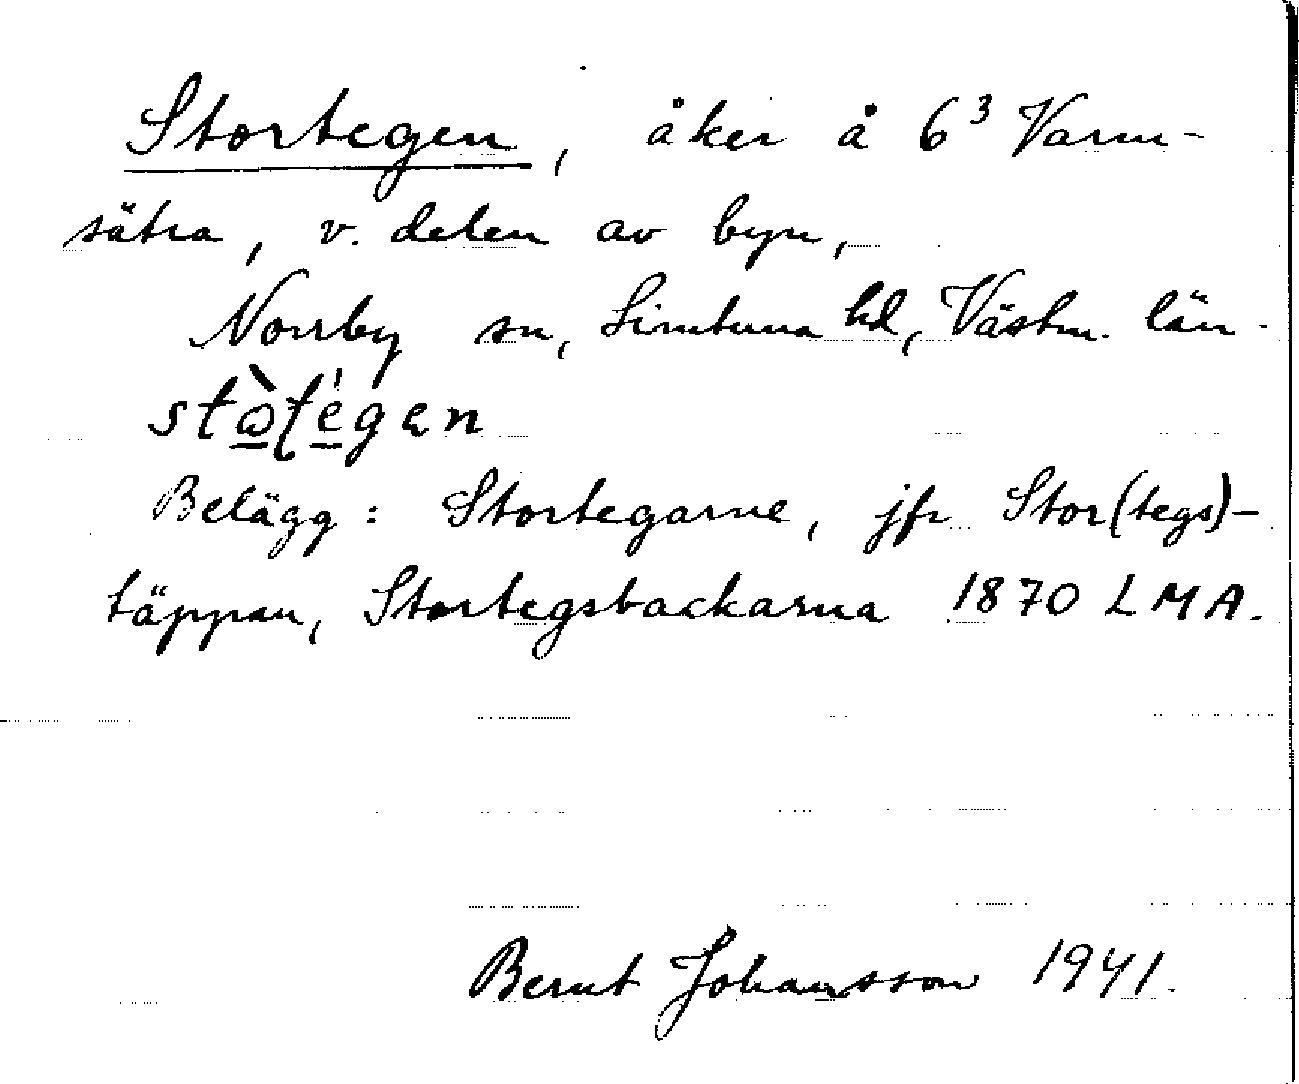 Stortegen, åker å 6³ Varm-
sätra, v. delen av byn,
Norrby sn, Simtuna hd, Västm. län.
Belägg: Stortegarne, jfr Stor(tegs)-
täppan, Stortegsbackarna 1870 LMA.
Bernt Johansson 1941.